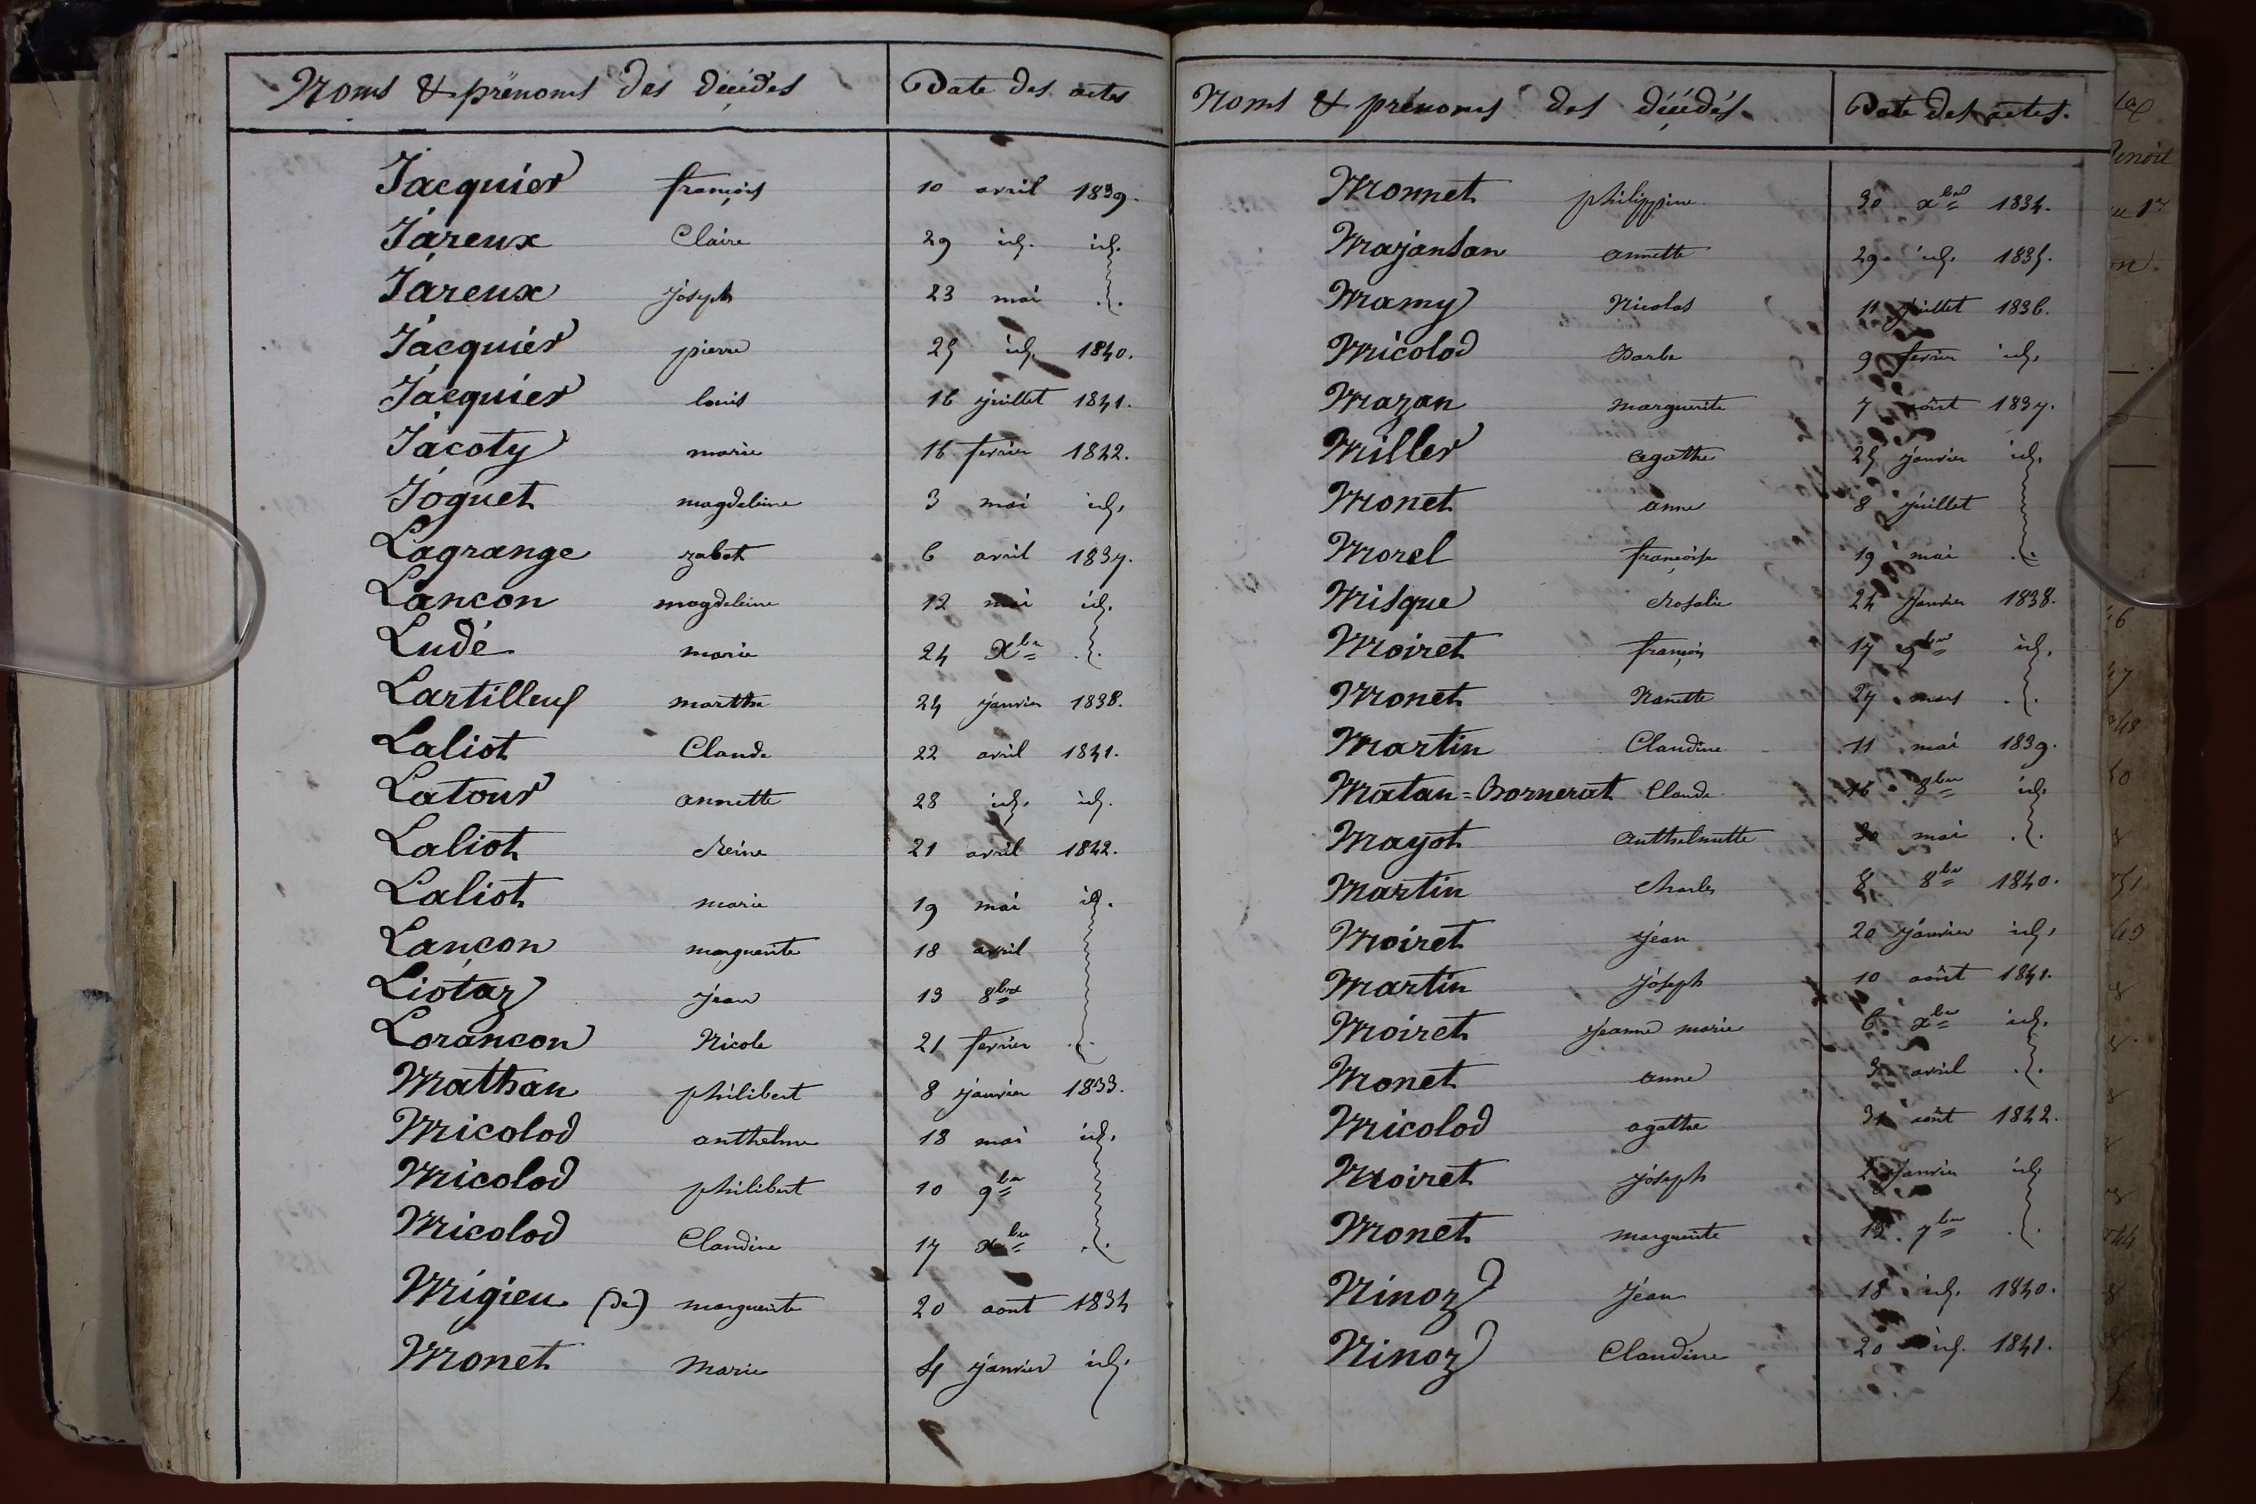 Noms & prénoms des décédés Date des actes
Jacquier françois 10 avril 1839.
Jareux Claire 29 id. id.
Jareux joseph 23 mai
Jacquier pierre 25 id. 1840.
Jacquier louis 16 juillet 1841.
Jacoty marie 16 fevrier 1842.
Joguet magdeleine 3 mai id.
Lagrange zabet 6 avril 1837.
Lancon magdeleine 12 mai id.
Ludé marie 24 Xbre
Lartilleux marthe 24 janvier 1838.
Laliot Claude 22 avril 1841.
Latour annette 28 id. id.
Laliot Reine 21 avril 1842.
Laliot marie 19 mai id.
Lançon marguerite 18 avril
Liotaz jean 13 8bre
Lorancon Nicole 21 fevrier
Mathan philibert 8 janvier 1833.
Micolod anthelme 18 mai id.
Micolod philibert 10 9bre
Micolod Claudine 17 xbre
Migieu (de) marguerite 20 aout 1834
Monet Marie 4 janvier id.
Noms & prénoms des décédés Date des actes.
Monnet philippine 30 xbre 1834.
Majanson annette 29 id. 1835.
Mamy Nicolas 11 juillet 1836.
Micolod Barbe 9 fevrier id.
Mazan marguerite 7 août 1837.
Miller agathe 25 janvier id.
Monet anne 8 juillet
Morel françoise 19 mai
Misque Rosalie 24 janvier 1838.
Moiret françois 17 9bre id.
Monet Nanette 27 mars
Martin Claudine 11 mai 1839.
Matan=Bornerat Claude 16 8bre id.
Mayot anthelmette 30 mai
Martin Charles 8 8bre 1840.
Moiret jean 20 janvier id.
Martin joseph 10 août 1841.
Moiret jeanne marie 6 xbre id.
Monet anne avril
Micolod agathe 31 août 1842.
Moiret joseph 2 janvier id.
Monet marguerite 12 7bre
Ninoz jean 18 id. 1840.
Ninoz Claudine 20 id. 1841.